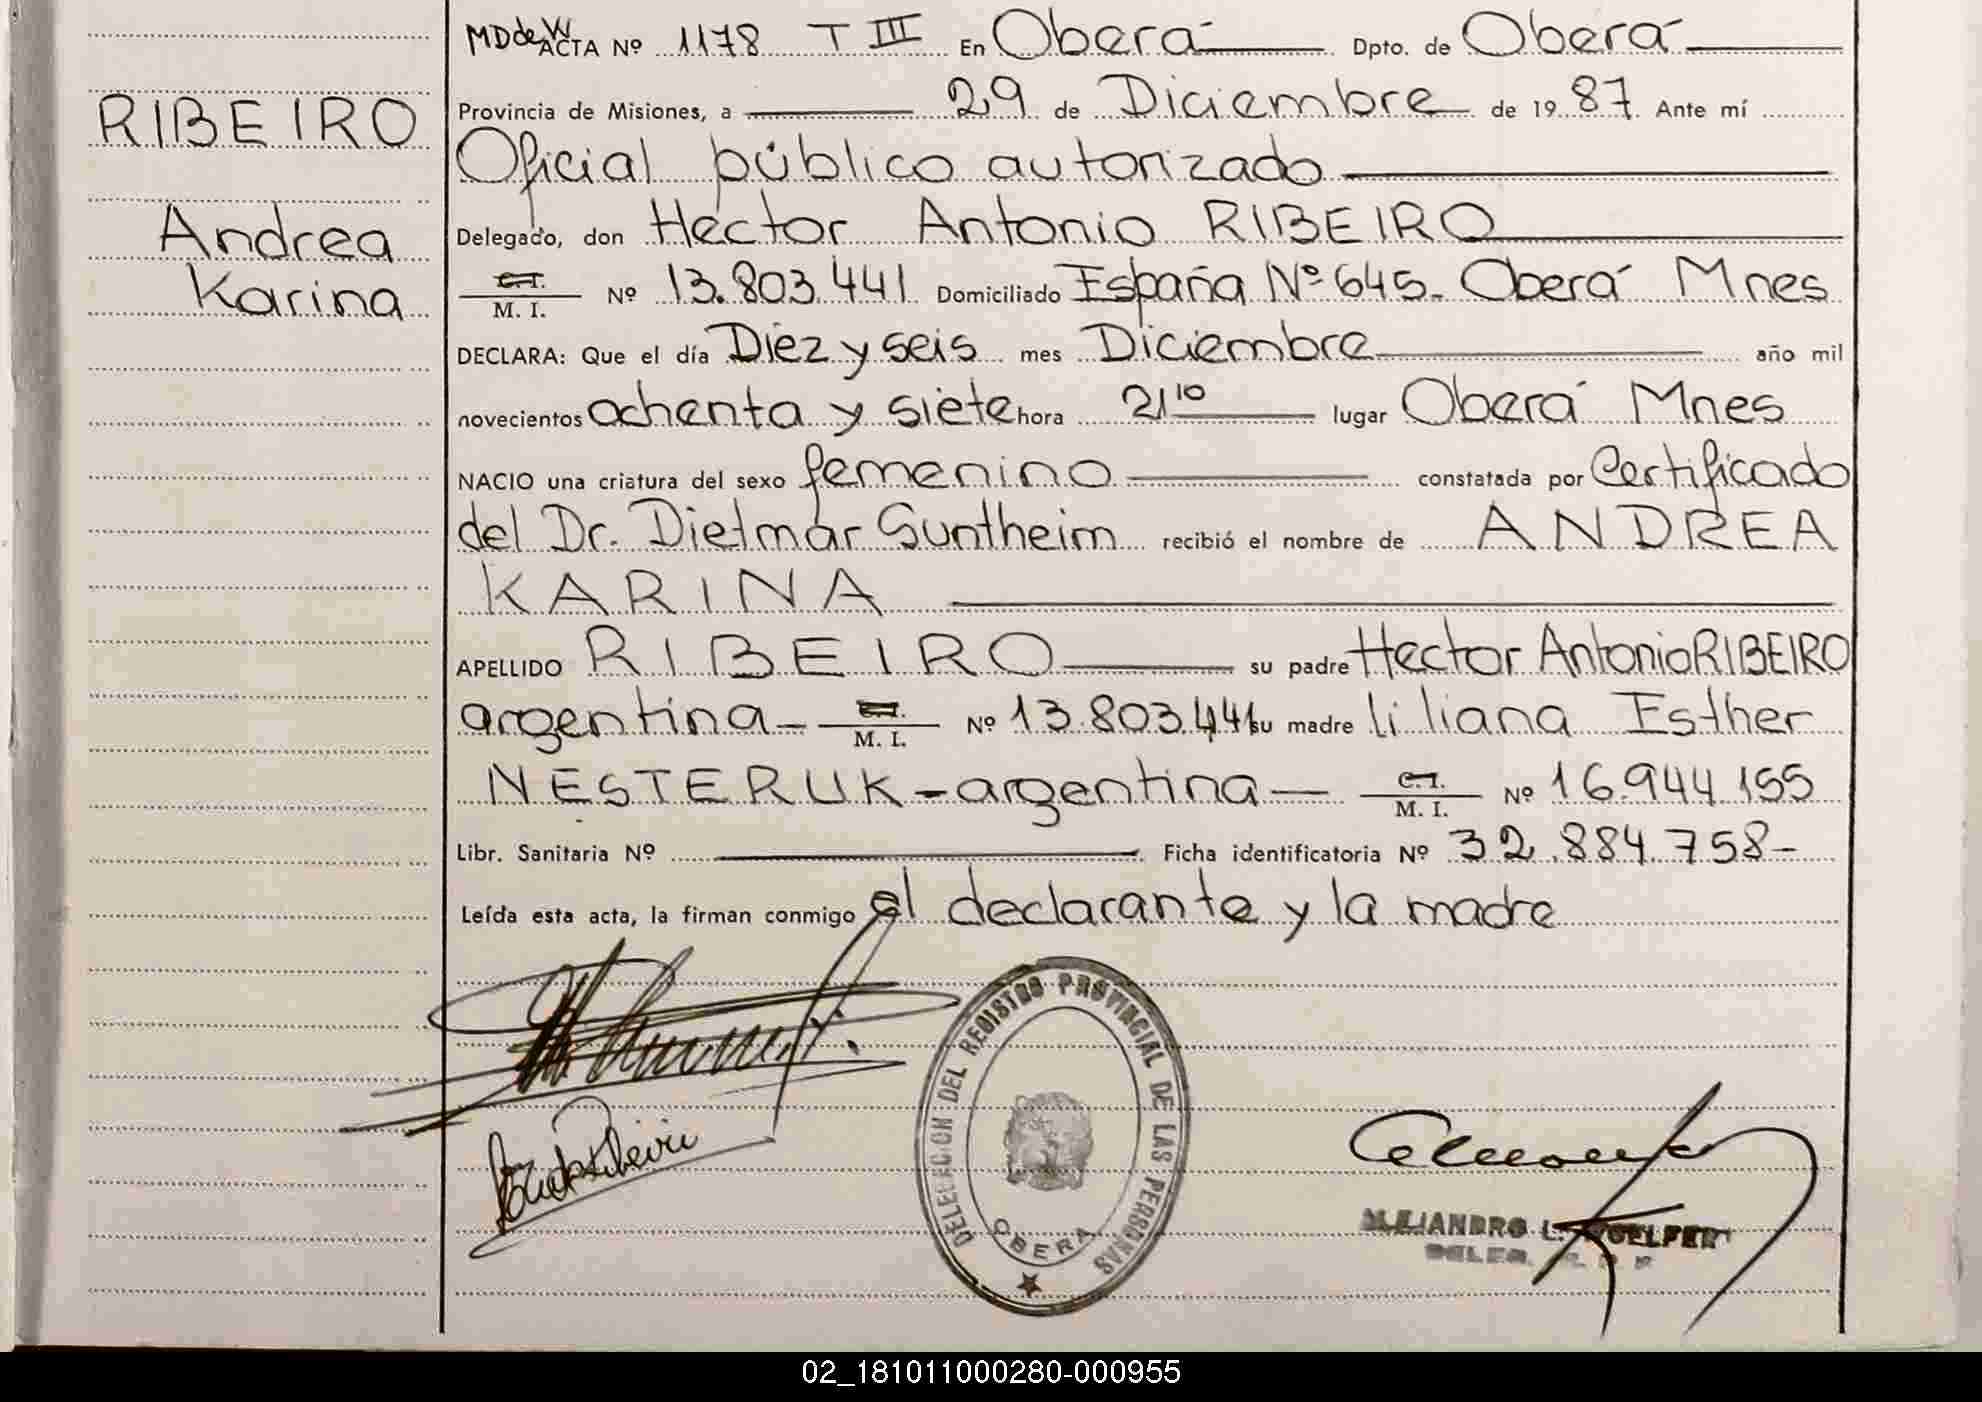 RIBEIRO
Andrea
Karina
MDdeW
ACTA Nº 1178 T III En Oberá Dpto. de Oberá
Provincia de Misiones, a 29 de Diciembre de 1987 Ante mí
Oficial público autorizado
Delegado, don Hector Antonio RIBEIRO
C.I. M. I. Nº 13.803.441 Domiciliado España Nº 645. Oberá Mnes
DECLARA: Que el día Diez y seis mes Diciembre año mil
novecientos ochenta y siete hora 21 10 lugar Oberá Mnes
NACIO una criatura del sexo femenino constatada por Certificado
del Dr. Dietmar Suntheim recibió el nombre de ANDREA
KARINA
APELLIDO RIBEIRO su padre Hector Antonio RIBEIRO
argentina - M. I. Nº 13.803.441 su madre liliana Esther
NESTERUK - argentina - C.I. M. I. Nº 16.944.155
Libr. Sanitaria Nº Ficha identificatoria Nº 32.884.758-
Leída esta acta, la firman conmigo el declarante y la madre
DELEGACION DEL REGISTRO PROVINCIAL DE LAS PERSONAS
OBERA
ALEJANDRO L.
02_181011000280-000955